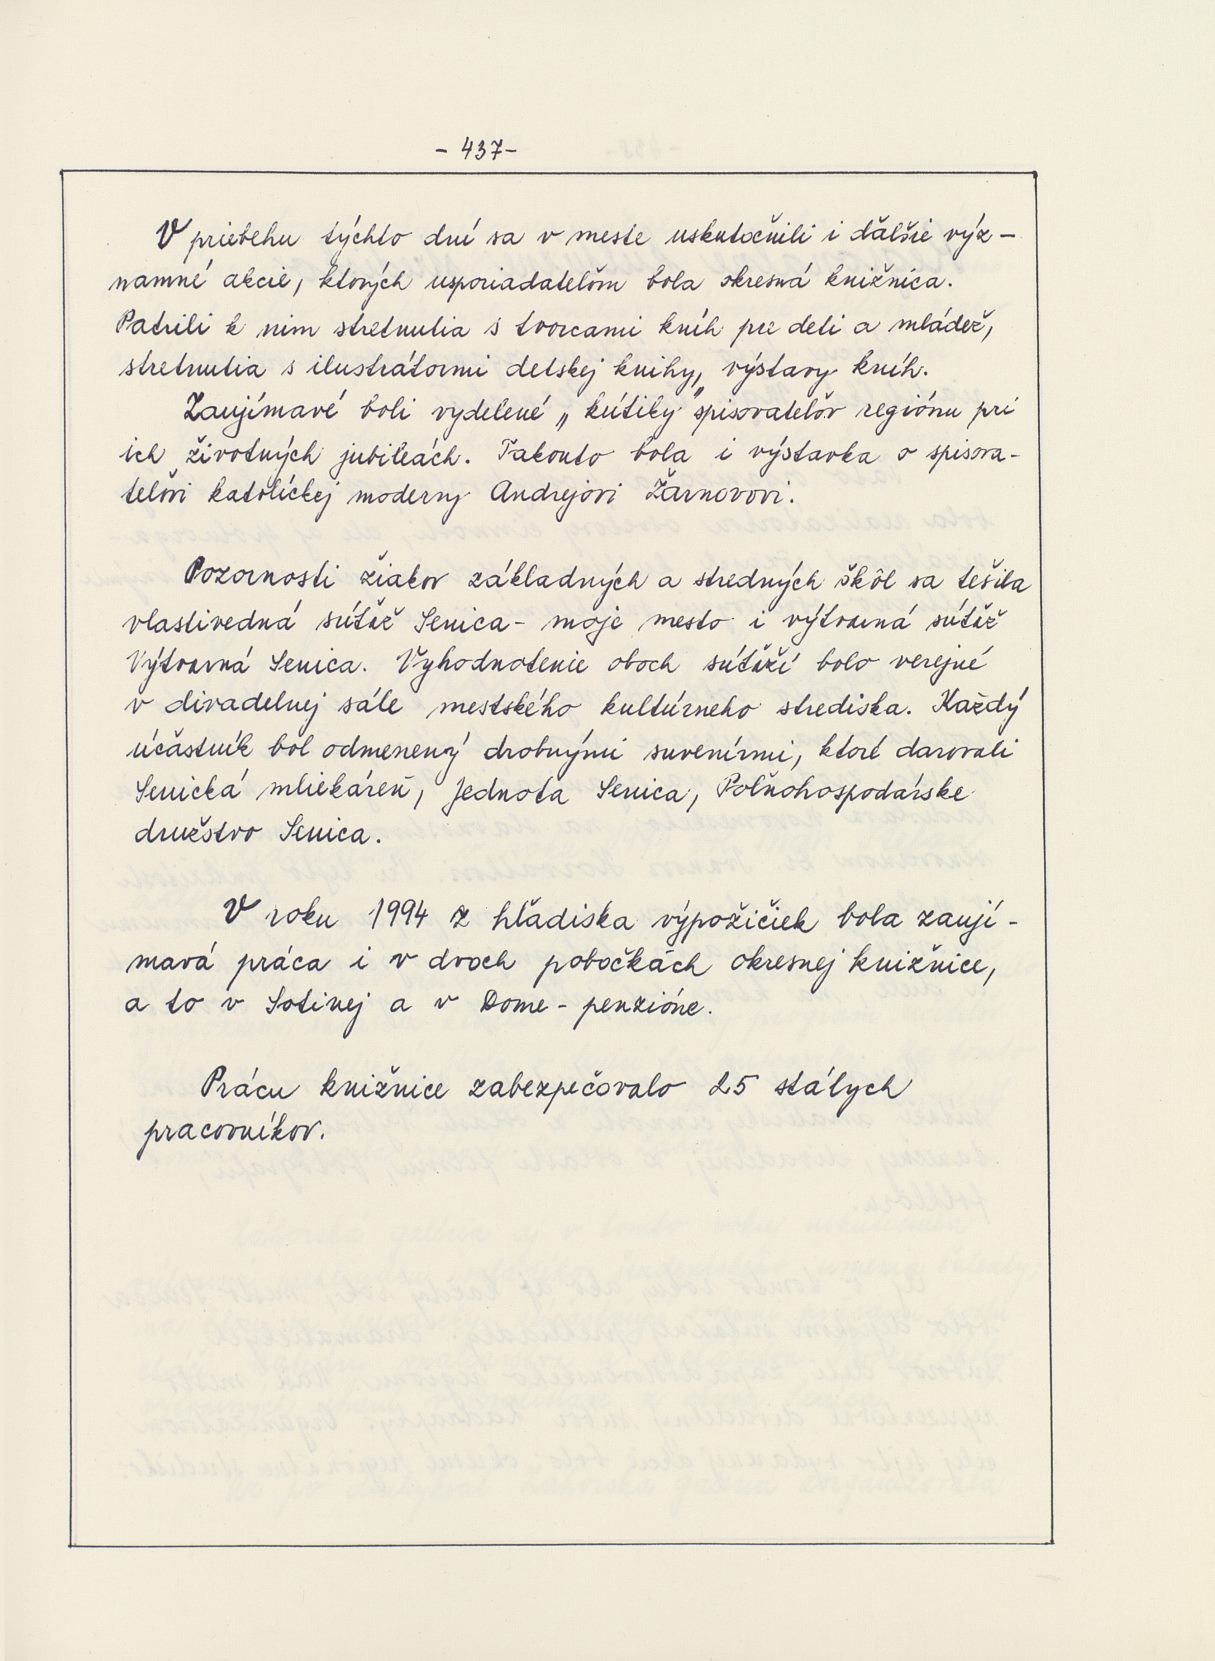 - 437-
V priebehu týchto dní sa v meste uskutočnili i ďalšie výz-
namné akcie, ktorých usporiadateľom bola okresná knižnica.
Patrili k nim stretnutia s tvorcami kníh pre deti a mládež,
stretnutia s ilustrátormi detskej knihy, výstavy kníh.
Zaujímavé boli vydelené „kútiky" spisovateľov regiónu pri
ich životných jubileách. Takouto bola i výstavka o spisova-
teľovi katolíckej moderny Andrejovi Žarnovovi.
Pozornosti žiakov základných a stredných škôl sa tešila
vlastivedná súťaž Senica - moje mesto i výtvarná súťaž
Výtvarná Senica. Vyhodnotenie oboch súťaží bolo verejné
v divadelnej sále mestského kultúrneho strediska. Každý
účastník bol odmenený drobnými suvenírmi, ktoré darovali
Senická mliekáreň, Jednota Senica, Poľnohospodárske
družstvo Senica.
V roku 1994 z hľadiska výpožičiek bola zaují-
mavá práca i v dvoch pobočkách okresnej knižnice,
a to v Sotinej a v Dome - penzióne.
Prácu knižnice zabezpečovalo 25 stálych
pracovníkov.